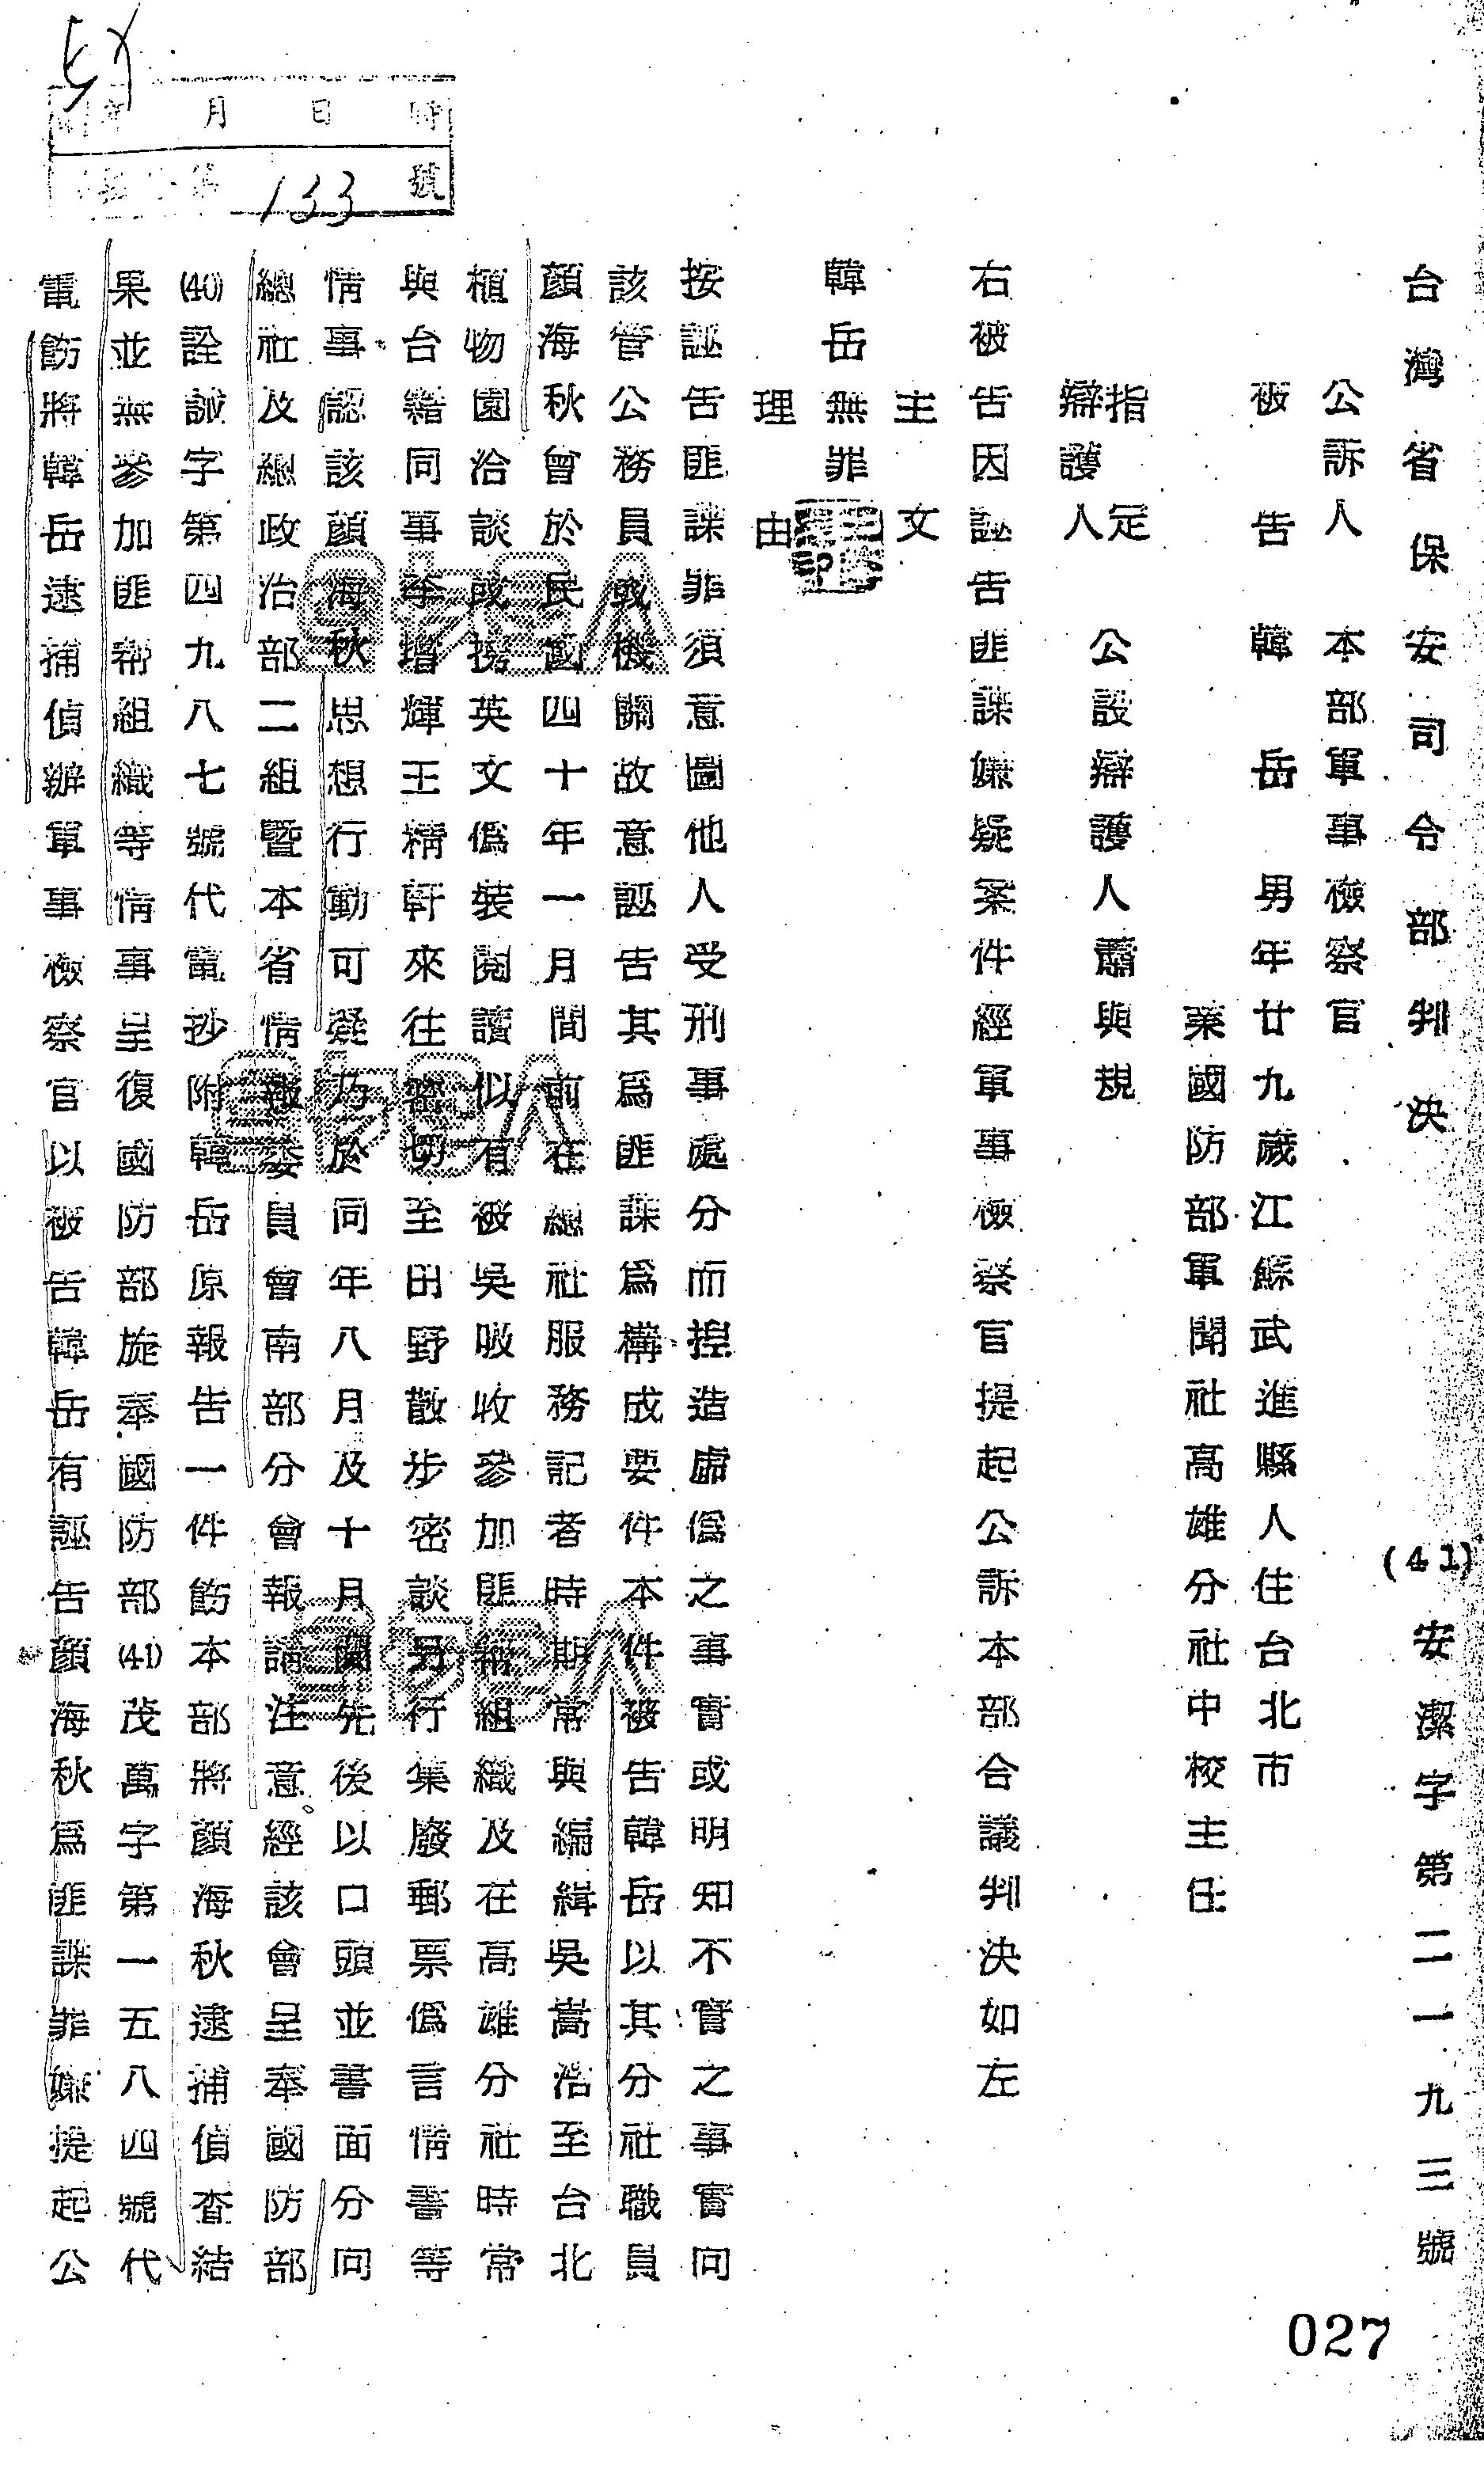 台灣省保安司令部判決 (41)安潔字第二一九三號
公訴人 本部軍事檢察官
被告 韓岳 男年廿九歲江蘇武進縣人住台北市
業國防部軍聞社高雄分社中校主任
指定
辯護人 公設辯護人蕭與規
右被告因誣告匪諜嫌疑案件經軍事檢察官提起公訴本部合議判決如左
主文
韓岳無罪
理由
按誣告匪諜罪須意圖他人受刑事處分而揑造虛僞之事實或明知不實之事實向
該管公務員或機關故意誣告其爲匪諜爲構成要件本件被告韓岳以其分社職員
顏海秋曾於民國四十年一月間前在總社服務記者時期常與編緝吳嵩浩至台北
植物園洽談或携英文僞裝閱讀似有被吳吸收參加匪幫組織及在高雄分社時常
與台籍同事李增輝王精軒來往密切至田野散步密談另行集廢郵票僞言情書等
情事認該顏海秋思想行動可疑乃於同年八月及十月間先後以口頭並書面分向
總社及總政治部二組暨本省情報委員會南部分會報請注意經該會呈奉國防部
(40)詮誠字第四九八七號代電抄附韓岳原報告一件飭本部將顏海秋逮捕偵查結
果並無參加匪幫組織等情事呈復國防部旋奉國防部(41)茂萬字第一五八四號代
電飭將韓岳逮捕偵辦軍事檢察官以被告韓岳有誣告顏海秋爲匪諜罪嫌提起公
年 月 日 時
第 133 號
027